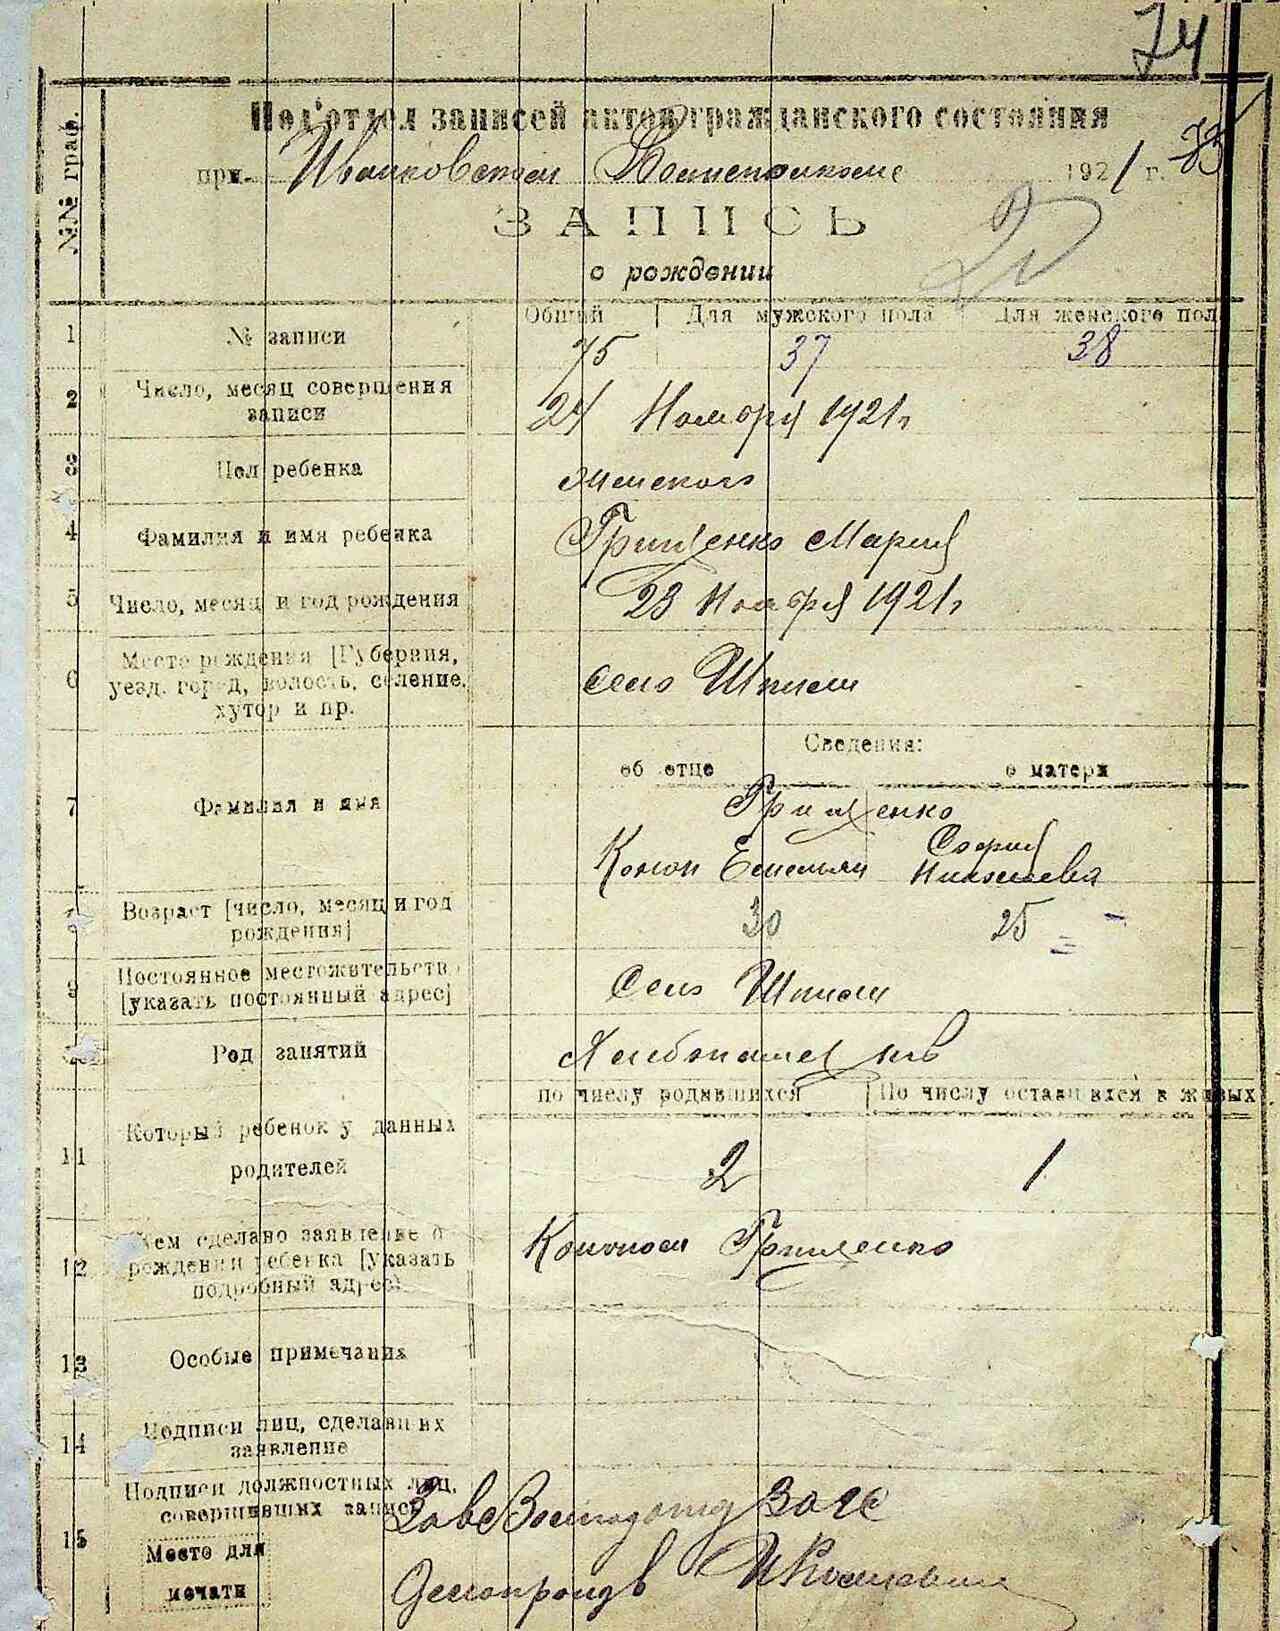 74
Подотдел записей актов гражданского состояния
№№ граф.
при Иванковском Волисполкоме 1921 г. 73
ЗАПИСЬ
о рождении
Общий Для мужского пола Для женского пола
1 № записи 75 37 38
2 Число, месяц совершения
записи
24 Ноября 1921 г
3 Пол ребенка женского
4 Фамилия и имя ребенка Грищенко Мария
5 Число, месяц и год рождения 23 Ноября 1921 г
Место рождения [Губерния,
6 уезд. город, волость, селение,
хутор и пр.
село Шпили
Сведения:
об отце о матери
7 Фамилия и имя
Грищенко
Конон Емельян
София
Николаева
Возраст [число, месяц и год
рождения]
30 25
Постоянное местожительство
9 [указать постоянный адрес]
Село Шпили
Род занятий Хлебопашество
по числу родившихся По числу оставшихся в живых
Который ребенок у данных
11 родителей
2 1
Кем сделано заявление о
12 рождении ребенка [указать
подробный адрес]
Кононом Грищенко
13 Особые примечания
Подписи лиц, сделавших
14 заявление
Подписи должностных лиц,
совершивших запись
15 Место для
печати
Делопроизв